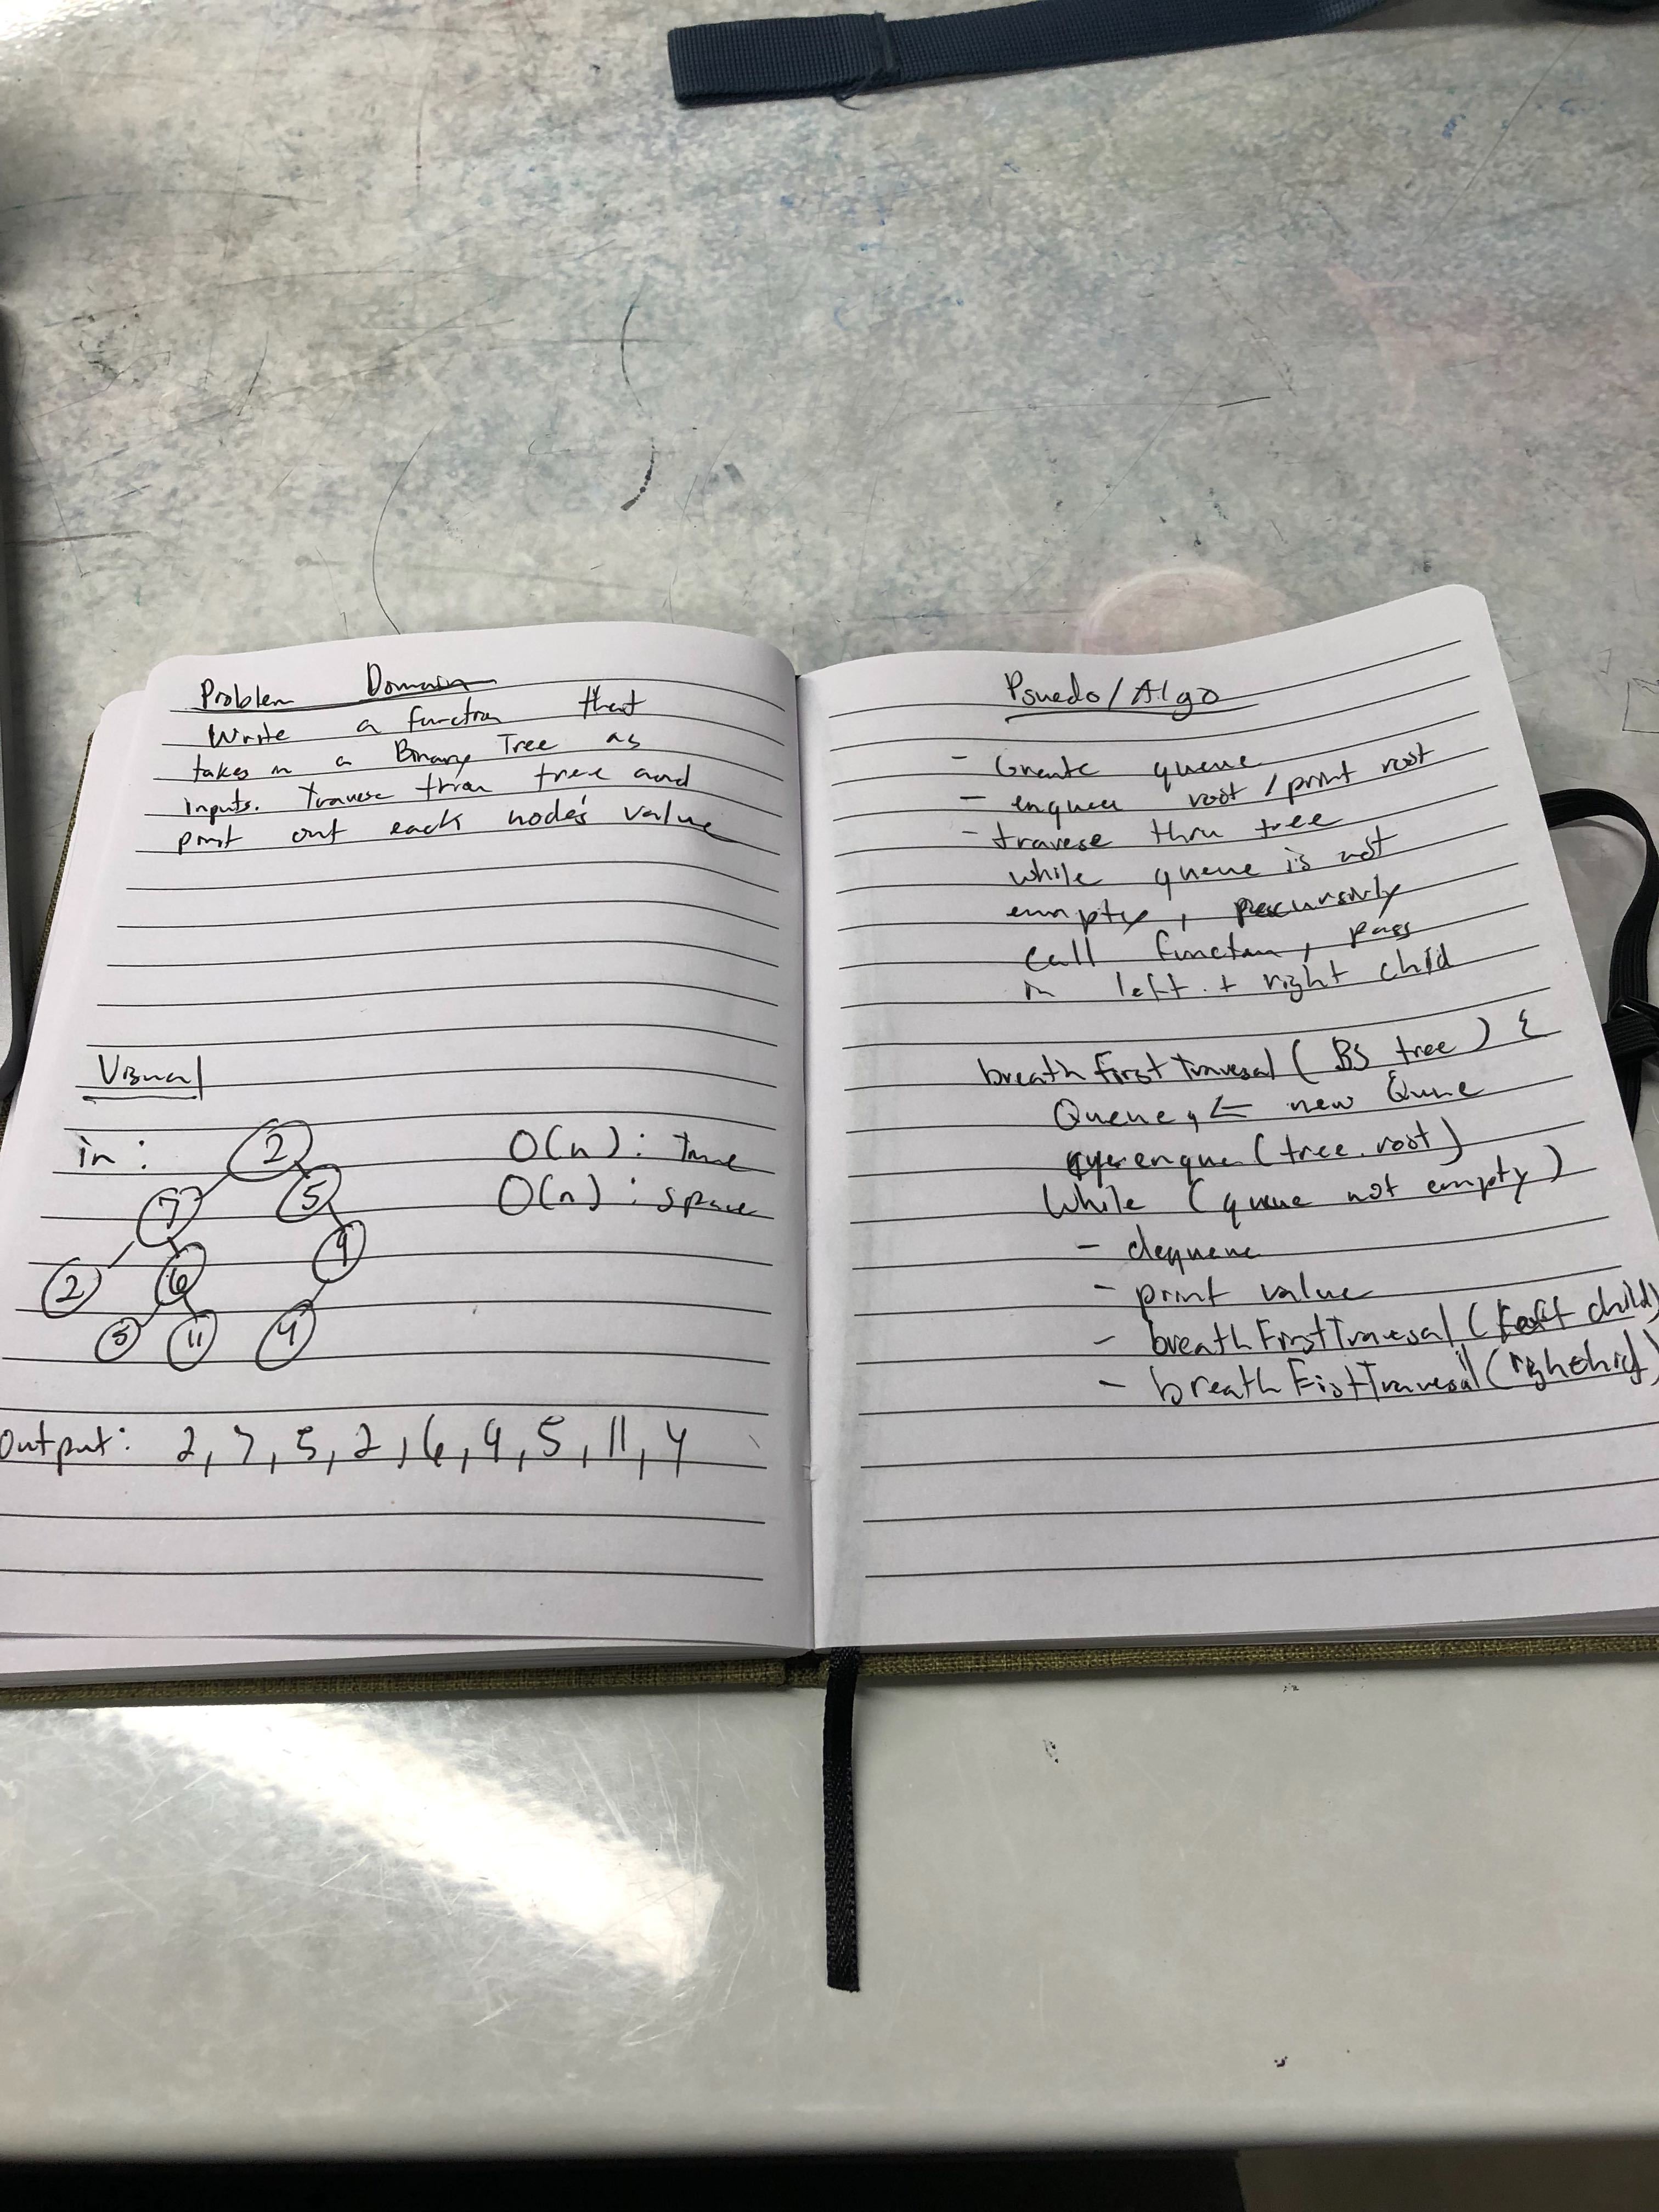 Problem Domain
Write a function that
takes in a Binary Tree as
inputs. Travese thru tree and
print out each node's value
Visual
in:
2
7 5
2 6 9
5 11 4
O(n): Time
O(n): space
Output: 2, 7, 5, 2, 6, 9, 5, 11, 4
Psuedo/Algo
- Create queue
- enqueu root / print root
- travese thru tree
while queue is not
empty, recursivly
call function, pass
in left + right child
breathFirstTraversal ( BS tree ) {
Queue ← new Queue
enque (tree.root)
While (queue not empty)
- dequeue
- print value
- breathFirstTraversal (left child)
- breathFistTraversal (right child)